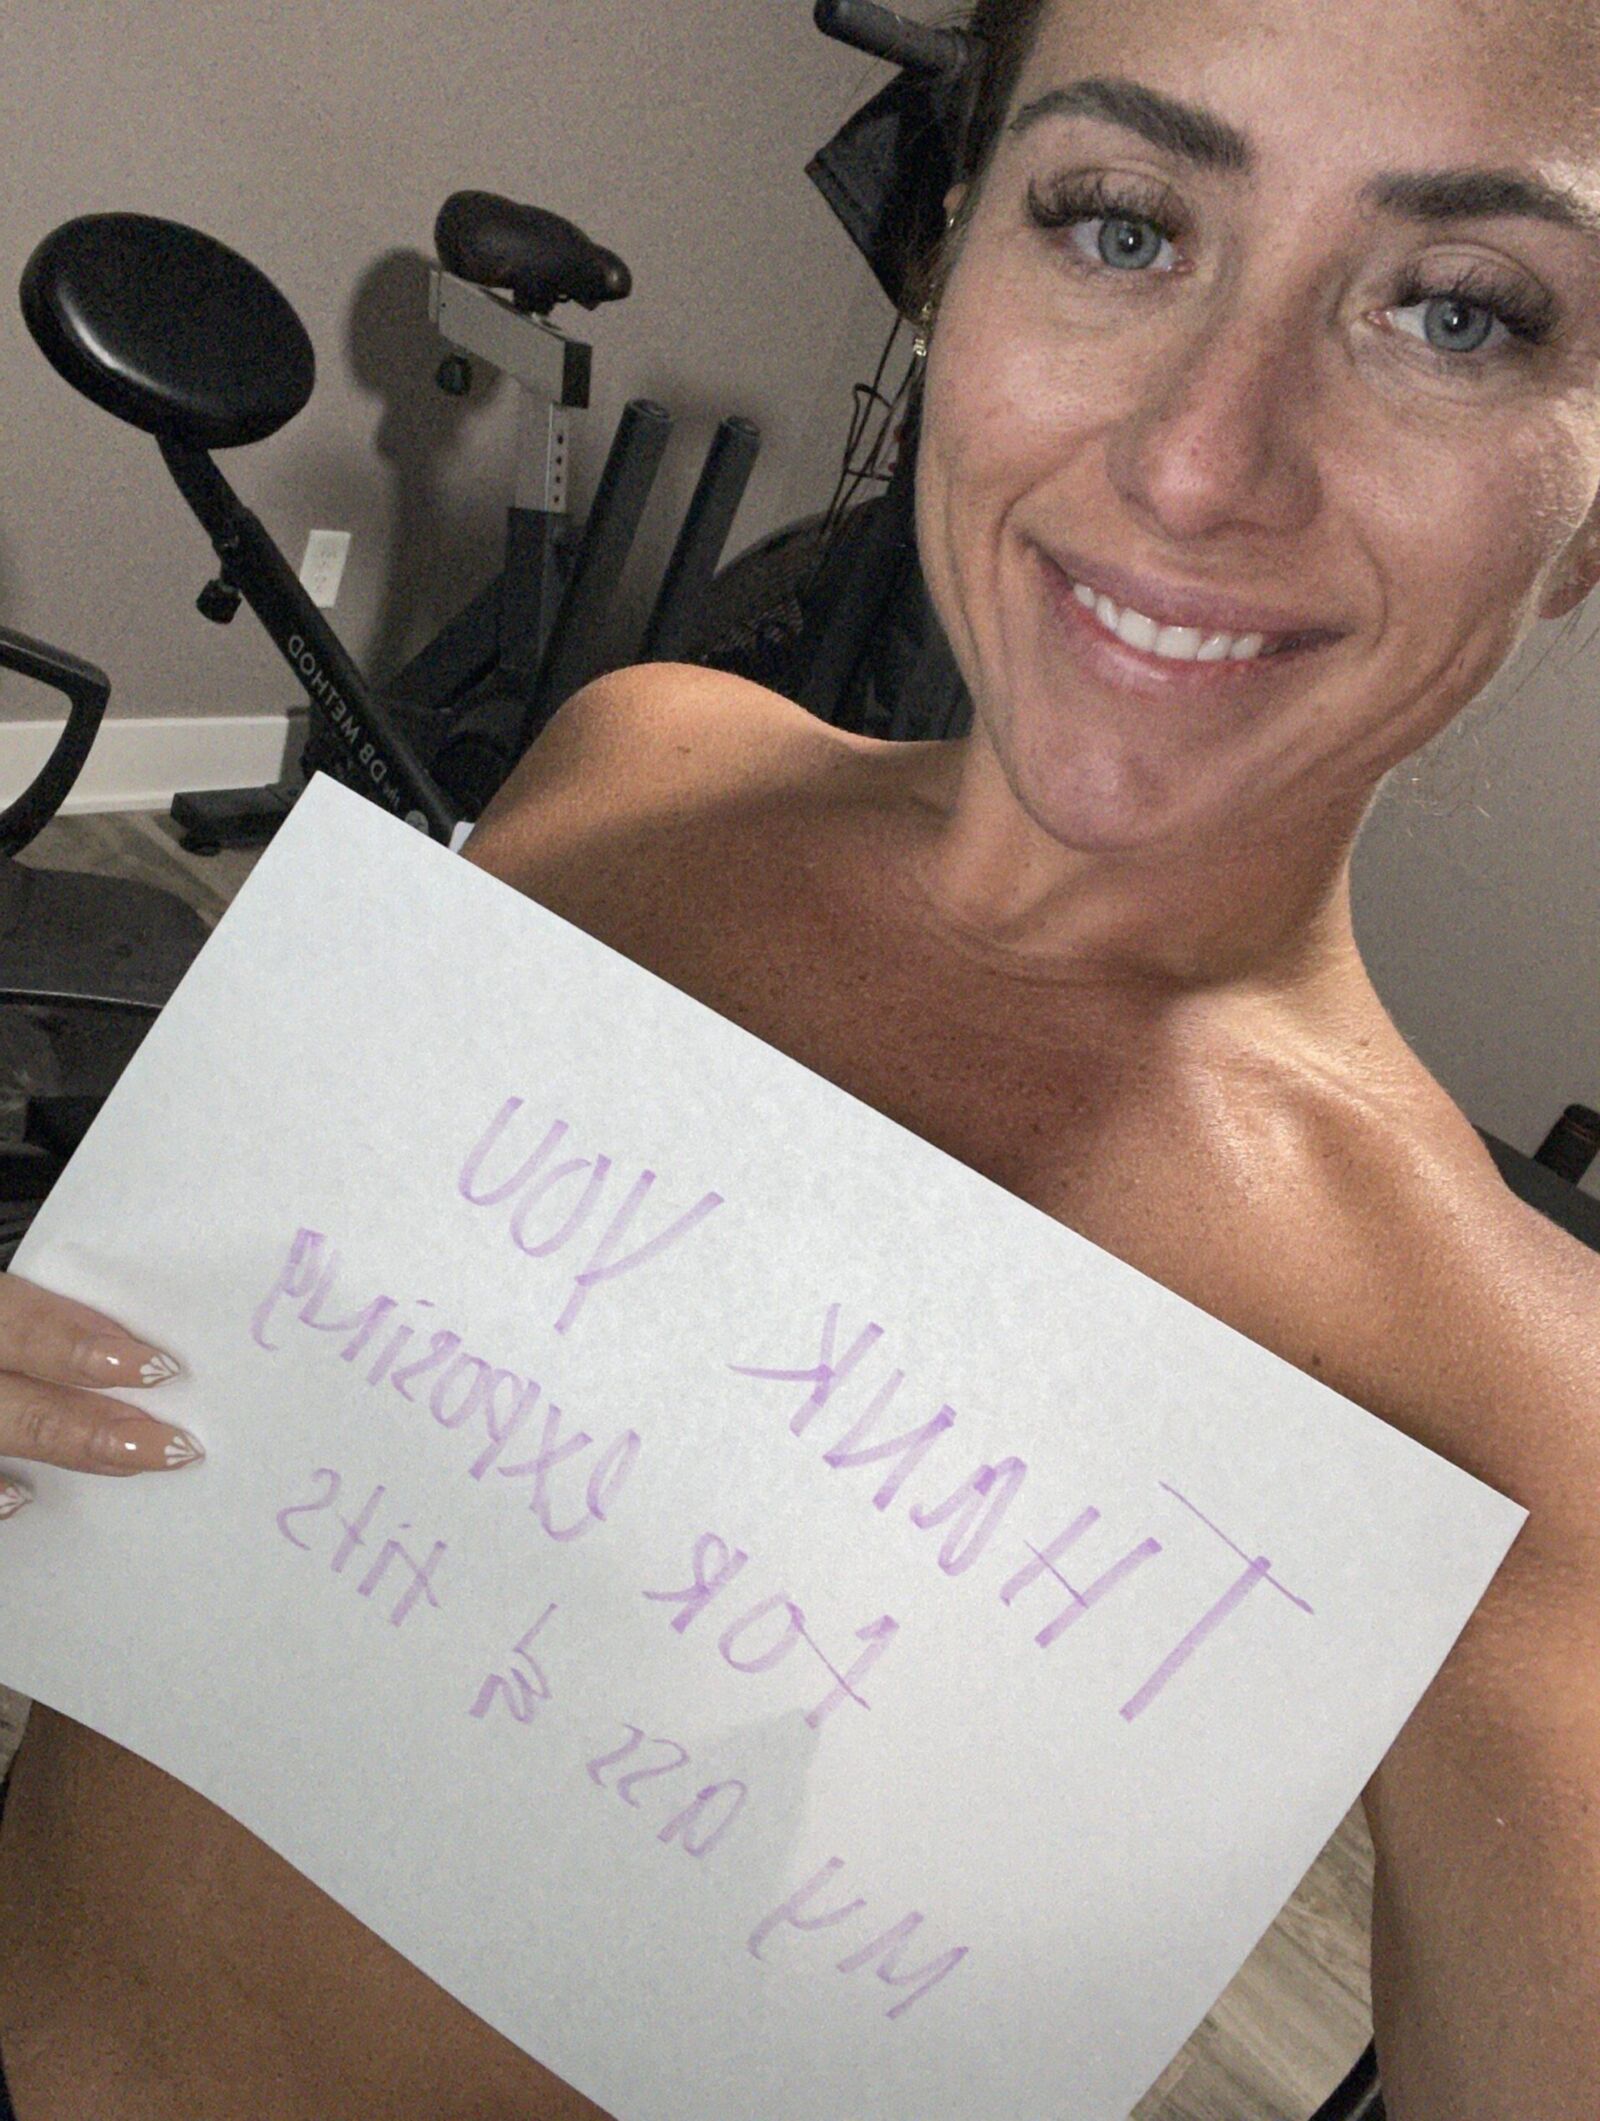 DB METHOD
THANK YOU
FOR Exposing
My ass & tits